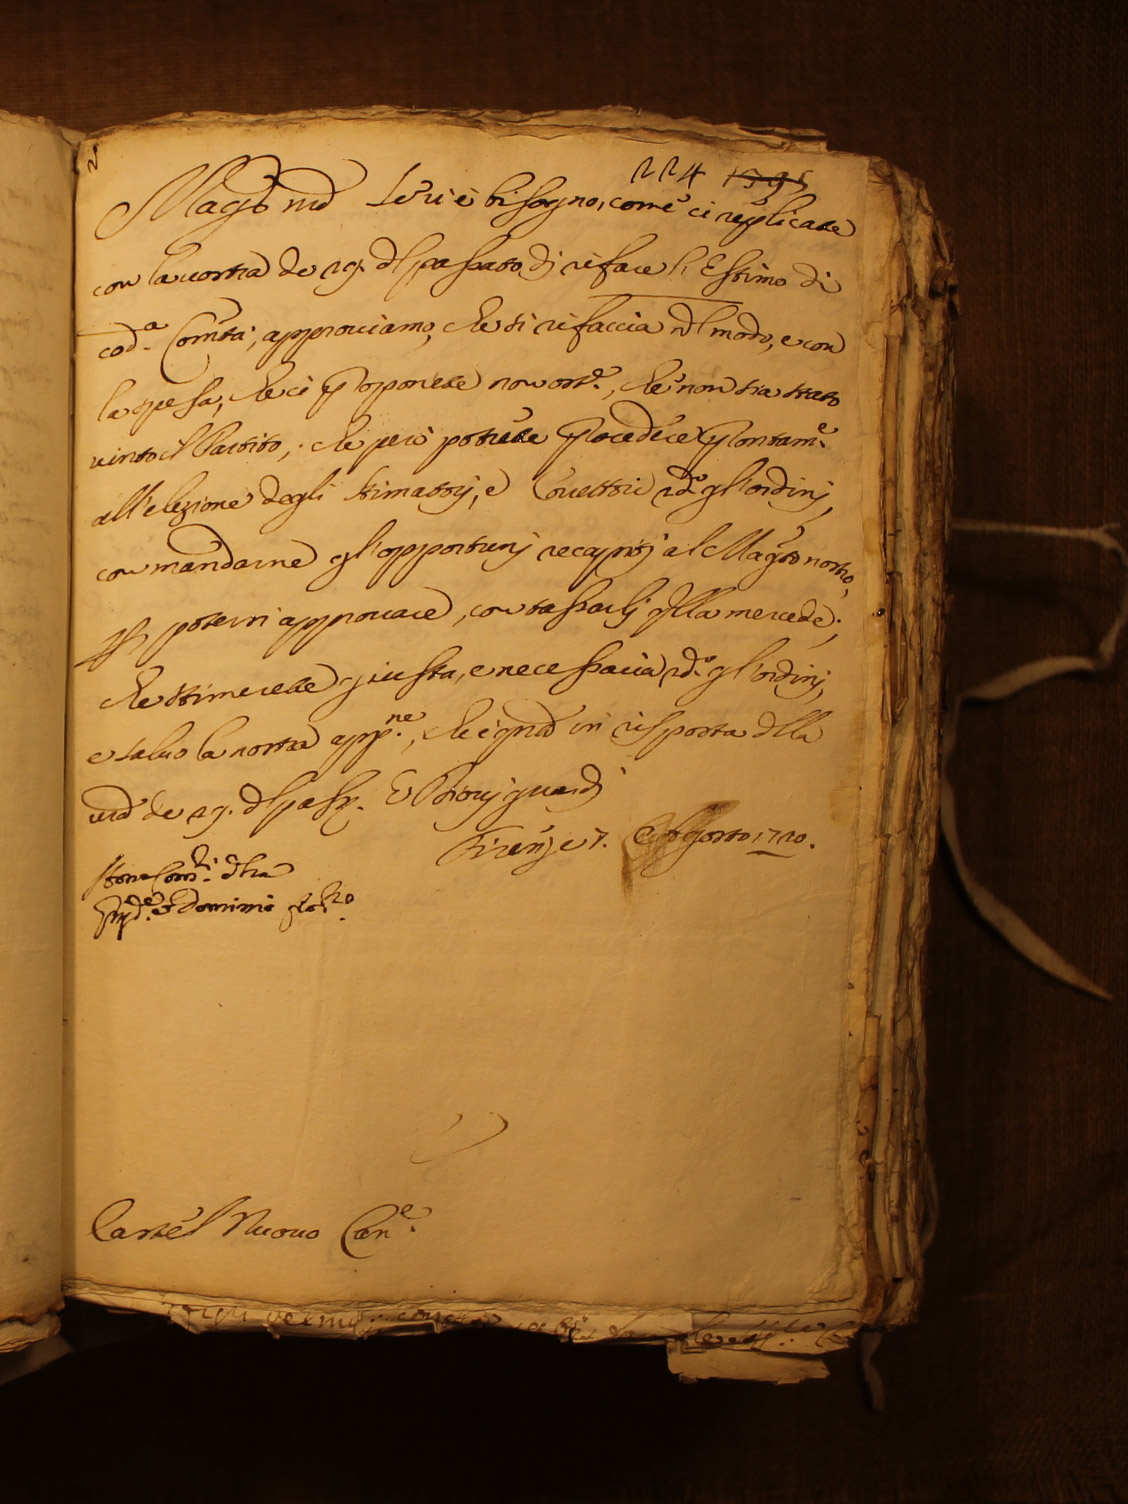 224 1395
Mag.co mio Se vi è bisogno, come ci replicate
con la vostra de 29. del passato di rifare l'Estimo di
cod.a Com.tà, approviamo, che si rifaccia nel modo, e con
la spesa, che ci proponete non ost.e, che non sia stato
vinto il Partito, che però potrete procedere prontam.e
all'elezione degli stimatori, e Corettori sed.o gl'ordini,
con mandarne gl'opportuni recapiti al Mag.to nostro,
per potervi approvare, con tassarli quella mercede,
che stimerete giusta, e necessaria sed.o gl'ordini,
e salvo la nostra app.ne, che è quanto in risposta della
vra de 29. del pass.o E Dio vi guardi
Firenze 7. Agosto 1720.
Castel Nuovo Can.e